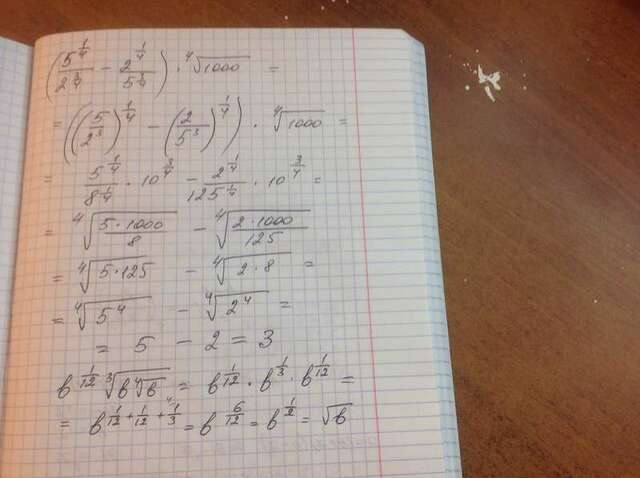 (5^(1/4)/2^(3/4) - 2^(1/4)/5^(3/4)) · ⁴√1000 =
= ((5/2³)^(1/4) - (2/5³)^(1/4)) · ⁴√1000 =
= 5^(1/4)/8^(1/4) · 10^(3/4) - 2^(1/4)/125^(1/4) · 10^(3/4) =
= ⁴√(5·1000/8) - ⁴√(2·1000/125)
= ⁴√(5·125) - ⁴√(2·8) =
= ⁴√(5⁴) - ⁴√(2⁴) =
= 5 - 2 = 3
b^(1/12) ³√(b ⁴√b) = b^(1/12) · b^(1/3) · b^(1/12) =
= b^(1/12 + 1/12 + ⁴1/3) = b^(6/12) = b^(1/2) = √b